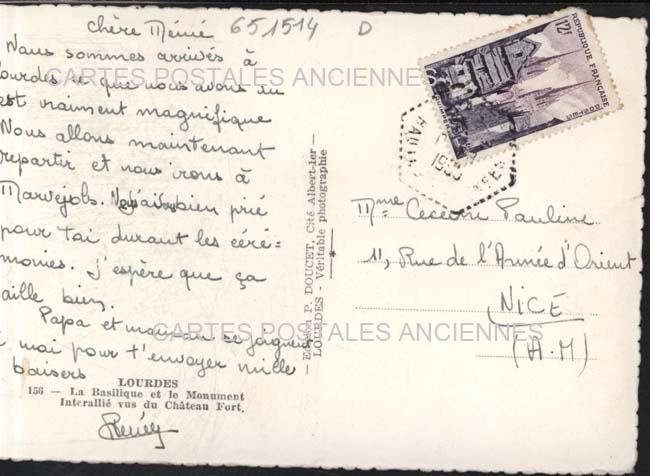 chère Mémé 651514 D
Nous sommes arrivés à
Lourdes ce que nous avons vu
est vraiment magnifique
Nous allons maintenant
repartir et nous irons à
Marvejols. bien prié
pour toi durant les céré=
monies. J'espère que ça
aille bien.
Papa et maman se joignent
à moi pour t'envoyer mille
baisers
LOURDES
156 — La Basilique et le Monument
Interallié vus du Château Fort.
— Edition P. DOUCET, Cité Albert-1er -
LOURDES Véritable photographie
12F
REPUBLIQUE FRANÇAISE
QUIMPER
1955
Mme Cecconi Pauline
11, Rue de l'Armée d'Orient
NICE
(A.M)
CARTES POSTALES ANCIENNES
CARTES POSTALES ANCIENNES